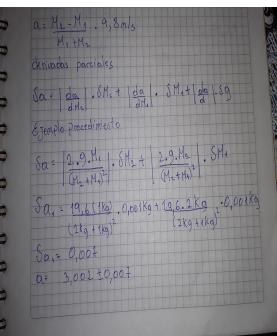 a = M2 - M1 / M1 + M2 . 9,8 m/s
derivadas parciales
δa = |da/dM2| . δM2 + |da/dM1| . δM1 + |da/d | . δg
Ejemplo procedimiento
δa = |2.g.M1/(M2+M1)²| . δM2 + |2.g.M2/(M2+M1)²| . δM1
δa1 = 19,6 (1kg)/(2kg+1kg)² . 0,001kg + 19,6.2kg/(2kg+1kg)² . 0,001kg
δa1 = 0,007
a = 3,002 ± 0,007